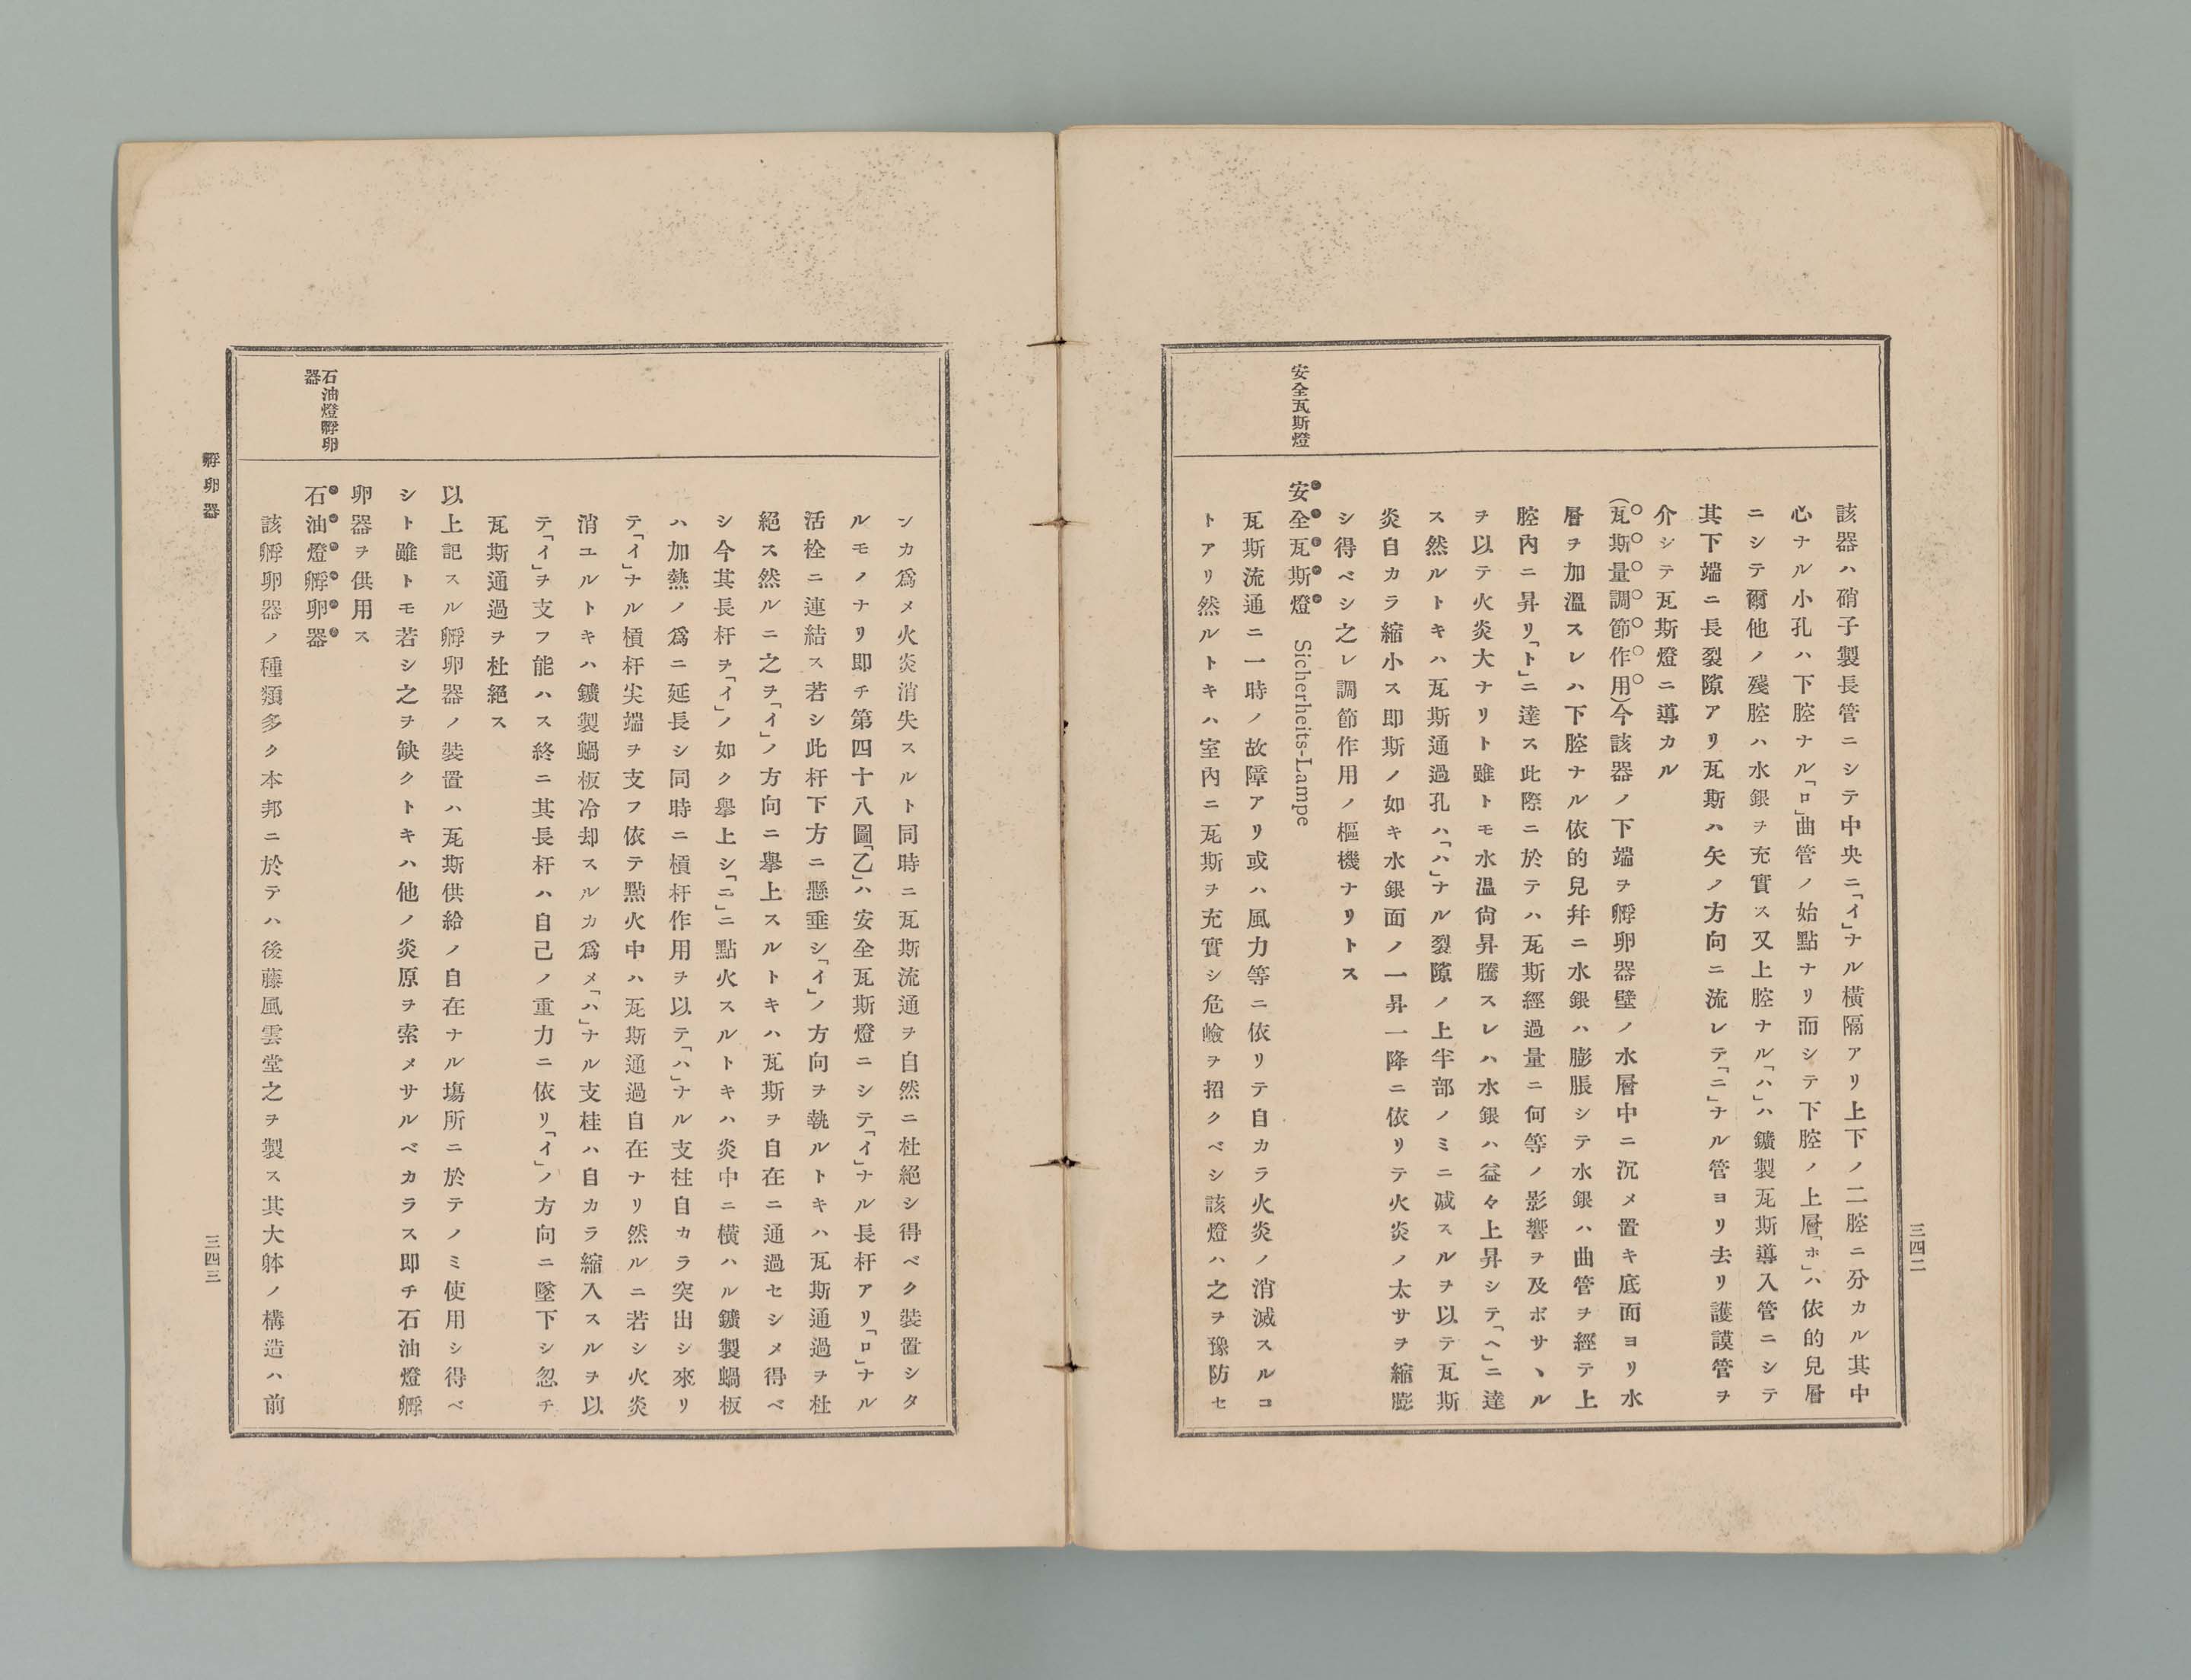 三四二
安全瓦斯燈
該器ハ硝子製長管ニシテ中央ニ「イ」ナル橫隔アリ上下ノ二腔ニ分カル其中
心ナル小孔ハ下腔ナル「ロ」曲管ノ始點ナリ而シテ下腔ノ上層「ホ」ハ依的兒層
ニシテ爾他ノ殘腔ハ水銀ヲ充實ス又上腔ナル「ハ」ハ鑛製瓦斯導入管ニシテ
其下端ニ長裂隙アリ瓦斯ハ矢ノ方向ニ流レテ「ニ」ナル管ヨリ去リ護謨管ヲ
介シテ瓦斯燈ニ導カル
(瓦斯量調節作用)今該器ノ下端ヲ孵卵器壁ノ水層中ニ沉メ置キ底面ヨリ水
層ヲ加溫スレハ下腔ナル依的兒幷ニ水銀ハ膨脹シテ水銀ハ曲管ヲ經テ上
腔內ニ昇リ「ト」ニ達ス此際ニ於テハ瓦斯經過量ニ何等ノ影響ヲ及ボサヽル
ヲ以テ火炎大ナリト雖トモ水溫尙昇騰スレハ水銀ハ益々上昇シテ「ヘ」ニ達
ス然ルトキハ瓦斯通過孔ハ「ハ」ナル裂隙ノ上半部ノミニ减スルヲ以テ瓦斯
炎自カラ縮小ス即斯ノ如キ水銀面ノ一昇一降ニ依リテ火炎ノ太サヲ縮膨
シ得ベシ之レ調節作用ノ樞機ナリトス
安全瓦斯燈 Sicherheits-Lampe
瓦斯流通ニ一時ノ故障アリ或ハ風力等ニ依リテ自カラ火炎ノ消滅スルコ
トアリ然ルトキハ室內ニ瓦斯ヲ充實シ危嶮ヲ招クベシ該燈ハ之ヲ豫防セ
石油燈孵卵
器
ンカ爲メ火炎消失スルト同時ニ瓦斯流通ヲ自然ニ杜絕シ得ベク裝置シタ
ルモノナリ即チ第四十八圖「乙」ハ安全瓦斯燈ニシテ「イ」ナル長杆アリ「ロ」ナル
活栓ニ連結ス若シ此杆下方ニ懸垂シ「イ」ノ方向ヲ執ルトキハ瓦斯通過ヲ杜
絕ス然ルニ之ヲ「イ」ノ方向ニ擧上スルトキハ瓦斯ヲ自在ニ通過セシメ得ベ
シ今其長杆ヲ「イ」ノ如ク擧上シ「ニ」ニ點火スルトキハ炎中ニ橫ハル鑛製蝸板
ハ加熱ノ爲ニ延長シ同時ニ槓杆作用ヲ以テ「ハ」ナル支柱自カラ突出シ來リ
テ「イ」ナル槓杆尖端ヲ支フ依テ㸃火中ハ瓦斯通過自在ナリ然ルニ若シ火炎
消ユルトキハ鑛製蝸板冷却スルカ爲メ「ハ」ナル支桂ハ自カラ縮入スルヲ以
テ「イ」ヲ支フ能ハス終ニ其長杆ハ自己ノ重力ニ依リ「イ」ノ方向ニ墜下シ忽チ
瓦斯通過ヲ杜絕ス
以上記スル孵卵器ノ裝置ハ瓦斯供給ノ自在ナル塲所ニ於テノミ使用シ得ベ
シト雖トモ若シ之ヲ缺クトキハ他ノ炎原ヲ索メサルベカラス即チ石油燈孵
卵器ヲ供用ス
石油燈孵卵器
該孵卵器ノ種類多ク本邦ニ於テハ後藤風雲堂之ヲ製ス其大躰ノ構造ハ前
孵卵器
三四三